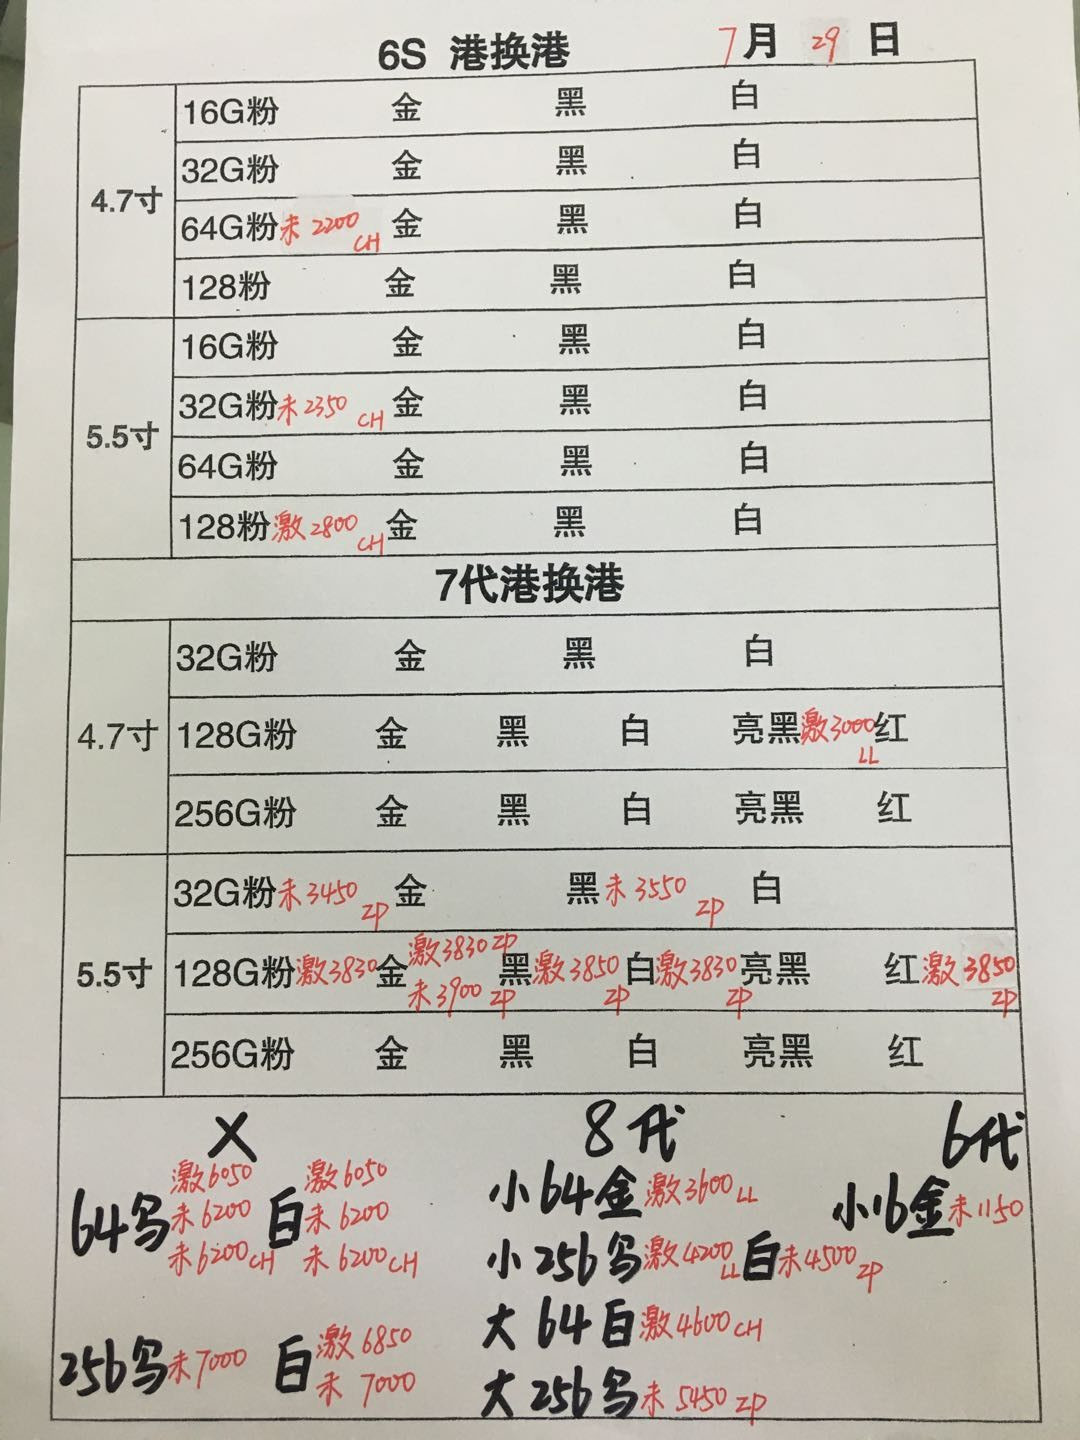 6S 港换港 7月29日
4.7寸
16G粉 金 黑 白
32G粉 金 黑 白
64G粉未2200CH 金 黑 白
128粉 金 黑 白
5.5寸
16G粉 金 黑 白
32G粉未2350CH 金 黑 白
64G粉 金 黑 白
128粉激2800CH 金 黑 白
7代港换港
4.7寸
32G粉 金 黑 白
128G粉 金 黑 白 亮黑激3000LL 红
256G粉 金 黑 白 亮黑 红
5.5寸
32G粉未3450ZP 金 黑未3550ZP 白
128G粉激3830 金激3830ZP未3900ZP 黑激3850ZP 白激3830ZP 亮黑 红激3850ZP
256G粉 金 黑 白 亮黑 红
X
64乌激6050 白激6050
未6200 未6200
未6200CH 未6200CH
256乌未7000 白激6850
未7000
8代
小64金激3600LL
小256乌激4200LL 白未4500ZP
大64白激4600CH
大256乌未5450ZP
6代
小16金未1150